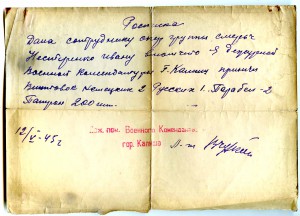 Расписка
Дана сотруднику опер группы смерш
Нестеренко Ивану в том что я дежурный
Военной комендатуры г. Калиш принял
Винтовок немецких 2 Русских 1. Парабел-2
Патрон 200 шт.
12/V-45 г.
Деж. пом. Военного Коменданта
гор. Калиша Л-т